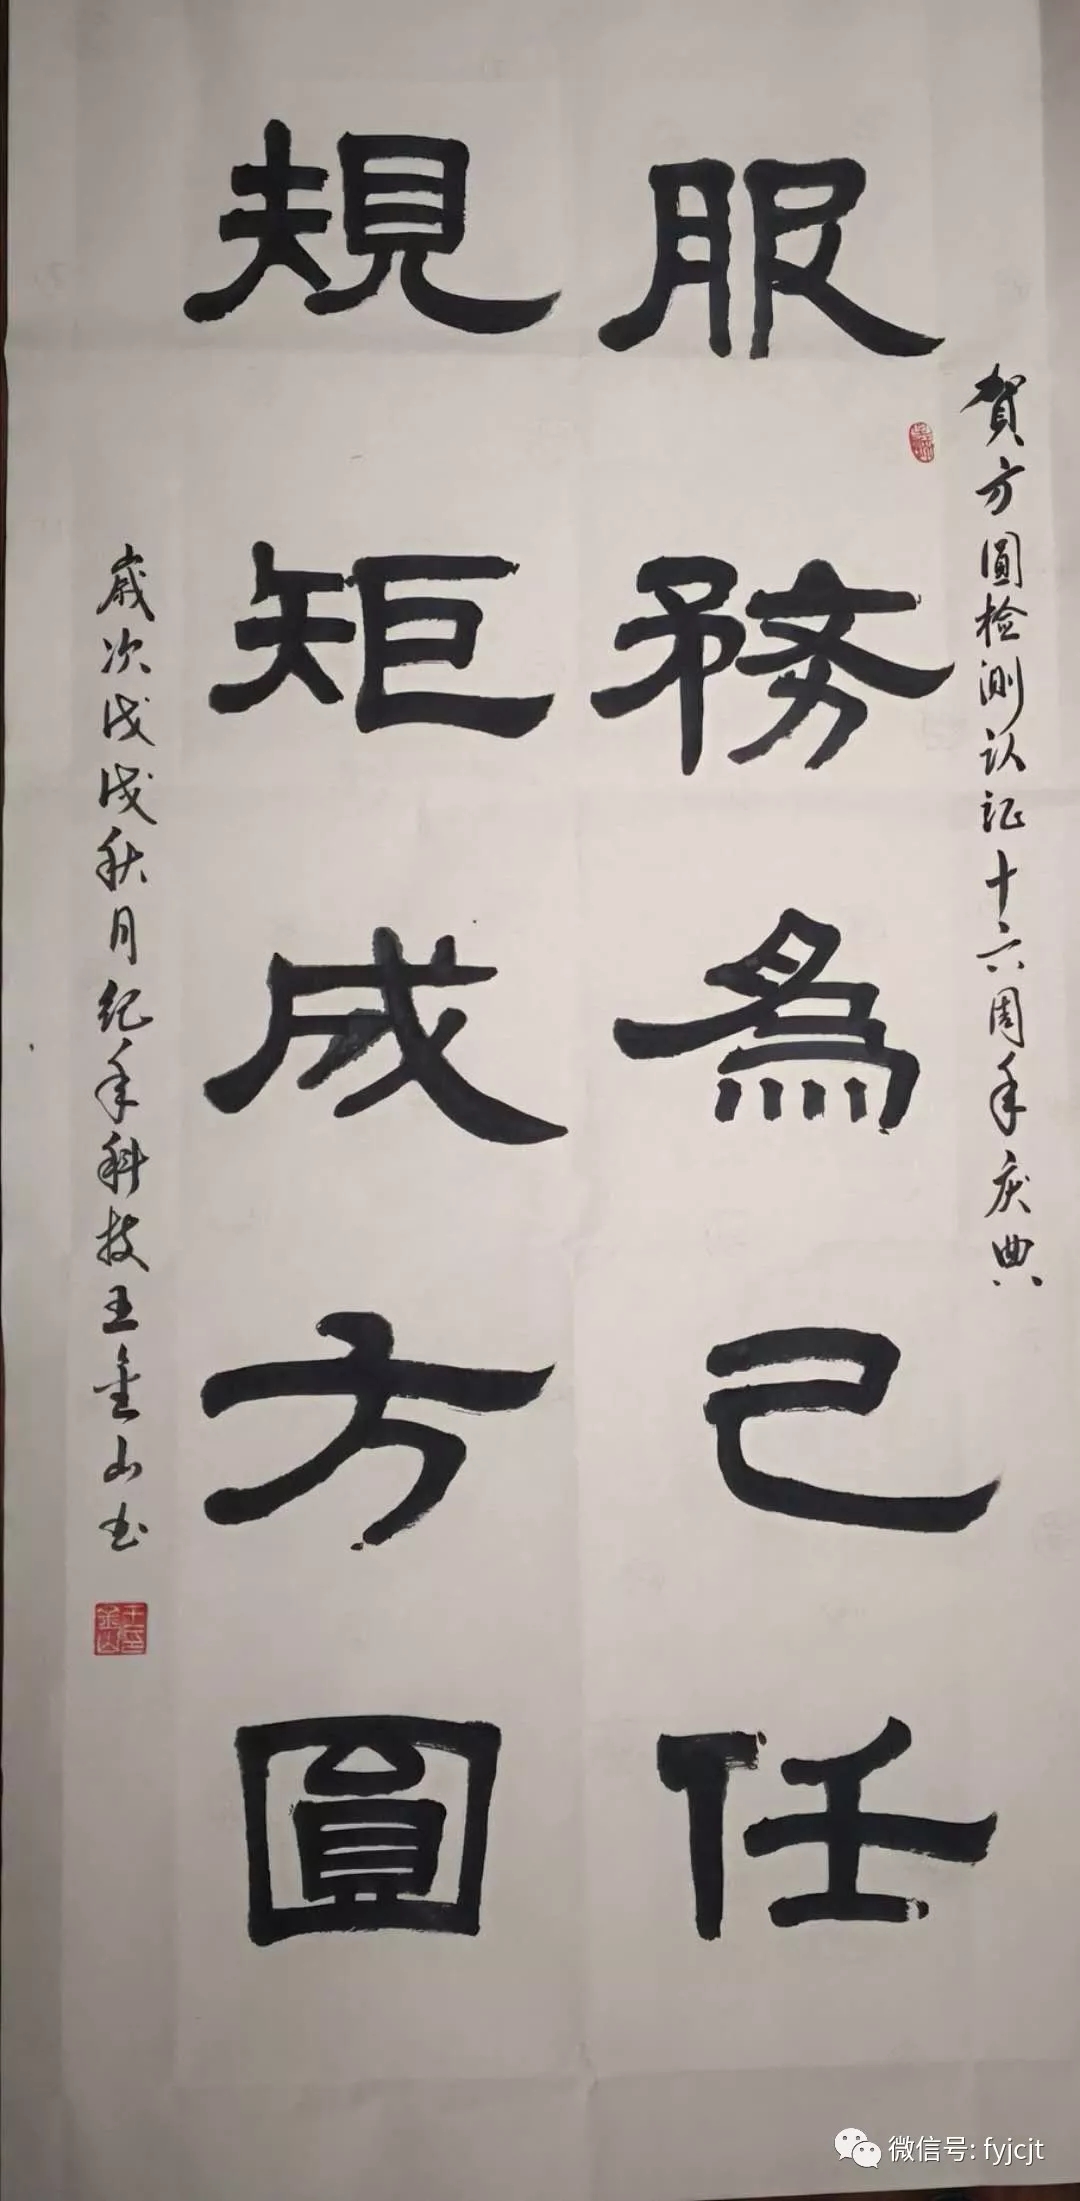 賀方圓检测认证十六周年庆典
服務為己任
規矩成方圓
歲次戊戌秋月纪年科技王金山书
王金山印
微信号: fyjcjt